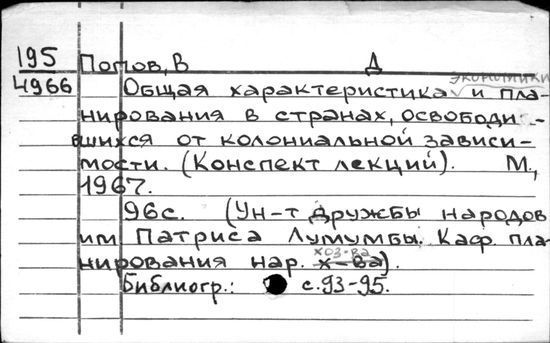 195 Попов, В Д
4966 экономики
Общая характеристика и пла-
нирования в странах, освободи-
вшихся от колониальной зависи-
мости. (Конспект лекций). М.,
1967.
96с. (Ун-т дружбы народов
им Патриса Лумумбы. Каф. пла-
хоз-ва
нирования нар. х-ва).
Библиогр.: с.93-95.